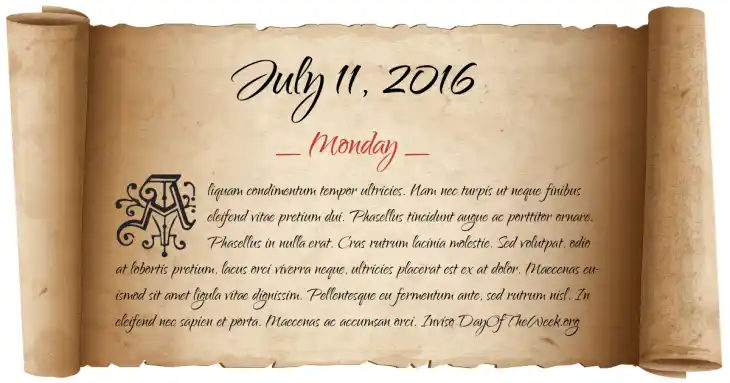 July 11, 2016
_ Monday _
Aliquam condimentum tempor ultricies. Nam nec turpis ut neque finibus
eleifend vitae pretium dui. Phasellus tincidunt augue ac porttitor ornare.
Phasellus in nulla erat. Cras rutrum lacinia molestie. Sed volutpat, odio
at lobortis pretium, lacus orci viverra neque, ultricies placerat est ex at dolor. Maecenas eu-
ismod sit amet ligula vitae dignissim. Pellentesque eu fermentum ante, sed rutrum nisl. In
eleifend nec sapien et porta. Maecenas ac accumsan orci. Inviso DayOfTheWeek.org